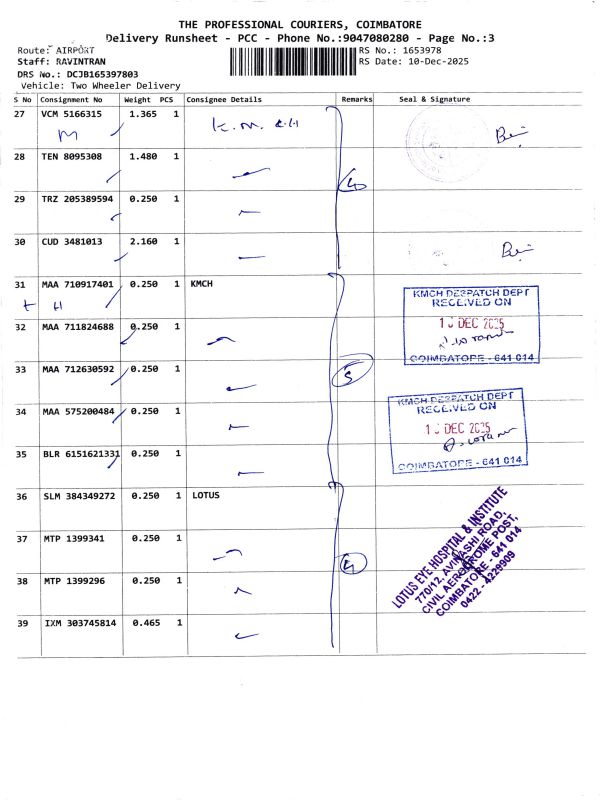 THE PROFESSIONAL COURIERS, COIMBATORE
Delivery Runsheet - PCC - Phone No.:9047080280 - Page No.:3
Route: AIRPORT
RS No.: 1653978
Staff: RAVINTRAN
RS Date: 10-Dec-2025
DRS No.: DCJB165397803
Vehicle: Two Wheeler Delivery
S No Consignment No Weight PCS Consignee Details Remarks Seal & Signature
27 VCM 5166315 1.365 1
M
28 TEN 8095308 1.480 1
29 TRZ 205389594 0.250 1
30 CUD 3481013 2.160 1
31 MAA 710917401 0.250 1 KMCH
32 MAA 711824688 0.250 1
33 MAA 712630592 0.250 1
5
34 MAA 575200484 0.250 1
35 BLR 6151621331 0.250 1
36 SLM 384349272 0.250 1 LOTUS
37 MTP 1399341 0.250 1
38 MTP 1399296 0.250 1
39 IXM 303745814 0.465 1
KMCH DESPATCH DEPT
RECEIVED ON
10 DEC 2025
COIMBATORE - 641 014
KMCH DESPATCH DEPT
RECEIVED ON
10 DEC 2025
COIMBATORE - 641 014
LOTUS EYE HOSPITAL & INSTITUTE
770/12, AVINASHI ROAD,
CIVIL AERODROME POST,
COIMBATORE - 641 014
0422 - 4229909